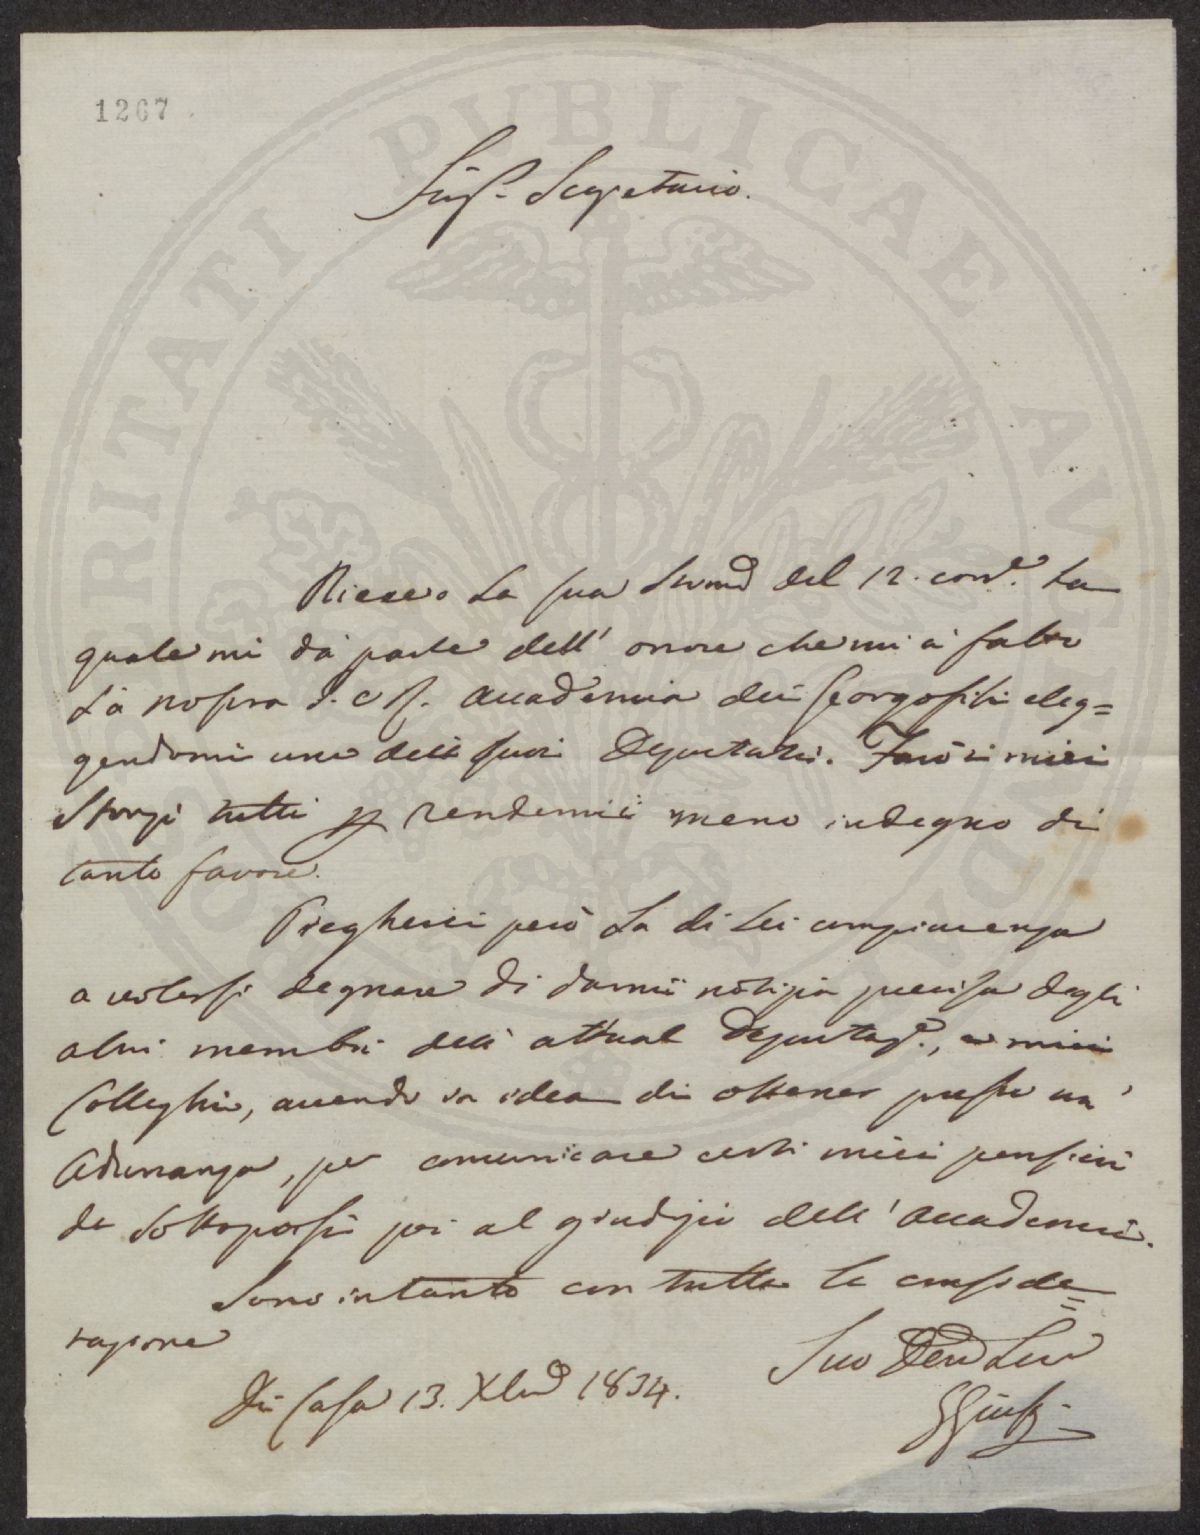 1267
Sigr. Segretario.
Ricevo la sua del 12. corre. la
quale mi dà parte dell' onore che mi à fatto
la nostra I. e R. Accademia dei Georgofili eleg=
gendomi uno dell suoi Deputati. Farò i miei
sforzi tutti p rendermi meno indegno di
tanto favore.
Pregherei però la di Lei compiacenza
a volersi degnare di darmi notizia precisa degli
altri membri dell' attual Deputaze., e miei
Colleghi, avendo in idea di ottener presto un'
Adunanza, per comunicare certi miei pensieri
da sottoporsi poi al giudizio dell' Accademia.
Sono intanto con tutta la conside=
razione
Suo Dev Ser
Di Casa 13. Xbre 1834.
PUBLICAE